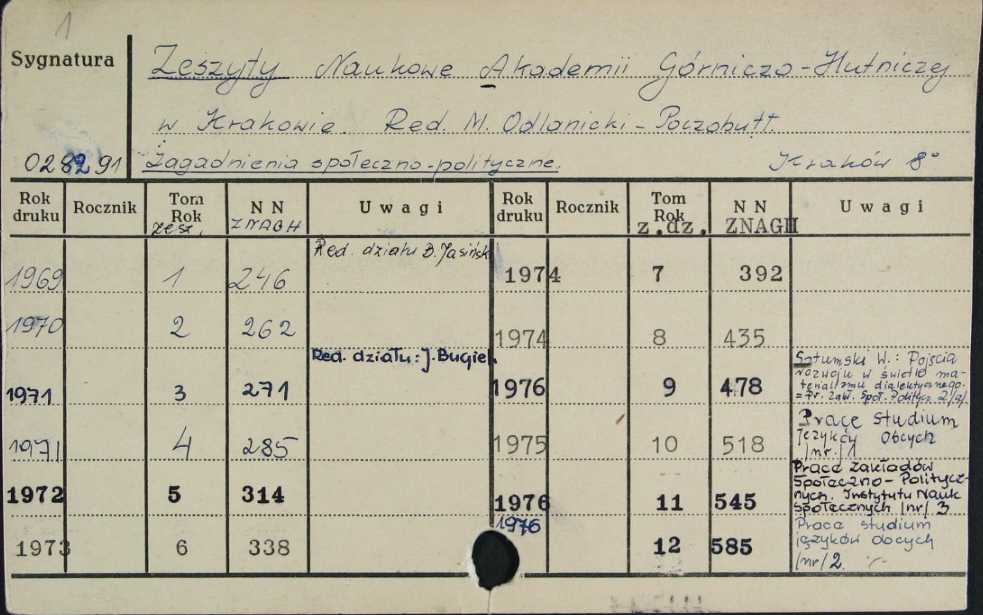 1
Sygnatura
Zeszyty Naukowe Akademii Górniczo-Hutniczej
w Krakowie. Red. M. Odlanicki-Poczobutt.
028291 Zagadnienia społeczno-polityczne. Kraków 8°
Rok druku Rocznik Tom Rok zesz. N N ZNAGH Uwagi Rok druku Rocznik Tom Rok z.dz. N N ZNAGH Uwagi
Red. działu B. Jasiński
1969 1 246
1974 7 392
1970 2 262
1974 8 435
Red. działu: J. Bugiel.
1971 3 271
1976 9 478
Sztumski W.: Pojęcia
rozwoju w świetle ma-
terializmu dialektycznego.
= Pr. Zakł. Społ. Politycz. 2/a/
1971 4 285
1975 10 518
Prace Studium
Języków Obcych
/nr/ 1
1972 5 314
1976 11 545
Prace Zakładów
Społeczno-Politycz-
nych. Instytutu Nauk
Społecznych /nr/ 3
1973 6 338
1976 12 585
Prace studium
języków obcych
/nr/ 2.